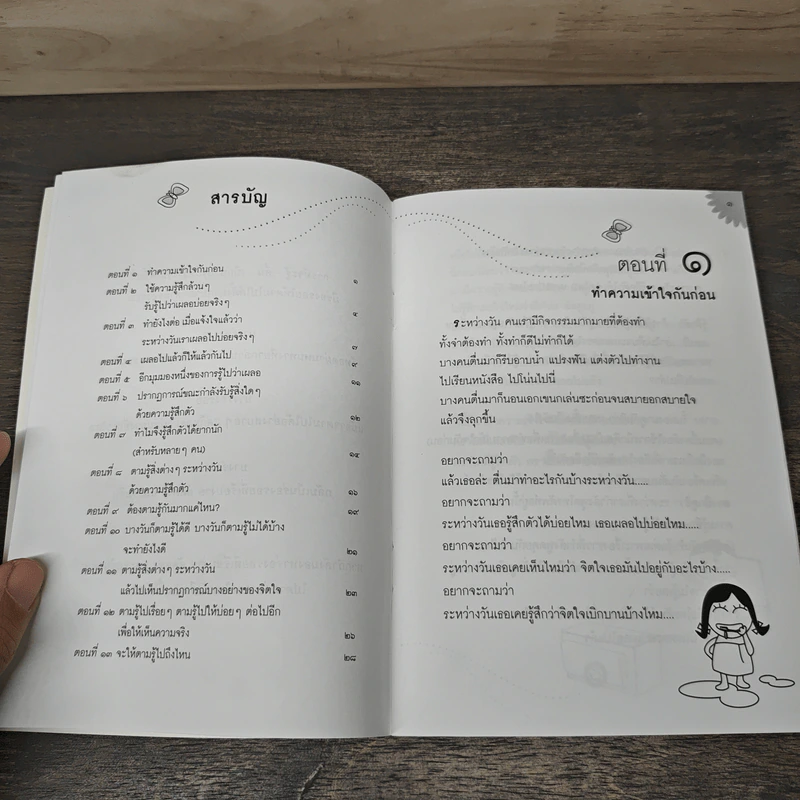 สารบัญ
ตอนที่ ๑ ทำความเข้าใจกันก่อน ๑
ตอนที่ ๒ ใช้ความรู้สึกล้วนๆ
รับรู้ไปว่าเผลอบ่อยจริงๆ ๔
ตอนที่ ๓ ทำยังไงต่อ เมื่อแจ้งใจแล้วว่า
ระหว่างวันเราเผลอไปบ่อยจริงๆ ๗
ตอนที่ ๔ เผลอไปแล้วก็ให้แล้วกันไป ๙
ตอนที่ ๕ อีกมุมมองหนึ่งของการรู้ไปว่าเผลอ ๑๑
ตอนที่ ๖ ปรากฏการณ์ขณะกำลังรับรู้สิ่งใดๆ
ด้วยความรู้สึกตัว ๑๒
ตอนที่ ๗ ทำไมจึงรู้สึกตัวได้ยากนัก
(สำหรับหลายๆ คน) ๑๔
ตอนที่ ๘ ตามรู้สิ่งต่างๆ ระหว่างวัน
ด้วยความรู้สึกตัว ๑๖
ตอนที่ ๙ ต้องตามรู้กันมากแค่ไหน? ๑๙
ตอนที่ ๑๐ บางวันก็ตามรู้ได้ดี บางวันก็ตามรู้ไม่ได้บ้าง
จะทำยังไงดี ๒๑
ตอนที่ ๑๑ ตามรู้สิ่งต่างๆ ระหว่างวัน
แล้วไปเห็นปรากฏการณ์บางอย่างของจิตใจ ๒๓
ตอนที่ ๑๒ ตามรู้ไปเรื่อยๆ ตามรู้ไปให้บ่อยๆ ต่อไปอีก
เพื่อให้เห็นความจริง ๒๖
ตอนที่ ๑๓ จะให้ตามรู้ไปถึงไหน ๒๘
๑
ตอนที่ ๑
ทำความเข้าใจกันก่อน
ระหว่างวัน คนเรามีกิจกรรมมากมายที่ต้องทำ
ทั้งจำต้องทำ ทั้งทำก็ดีไม่ทำก็ได้
บางคนตื่นมาก็รีบอาบน้ำ แปรงฟัน แต่งตัวไปทำงาน
ไปเรียนหนังสือ ไปโน่นไปนี่
บางคนตื่นมาก็นอนเอกเขนกเล่นซะก่อนจนสบายอกสบายใจ
แล้วจึงลุกขึ้น
อยากจะถามว่า
แล้วเธอล่ะ ตื่นมาทำอะไรกันบ้างระหว่างวัน.....
อยากจะถามว่า
ระหว่างวันเธอรู้สึกตัวได้บ่อยไหม เธอเผลอไปบ่อยไหม....
อยากจะถามว่า
ระหว่างวันเธอเคยเห็นไหมว่า จิตใจเธอมันไปอยู่กับอะไรบ้าง.....
อยากจะถามว่า
ระหว่างวันเธอเคยรู้สึกว่าจิตใจเบิกบานบ้างไหม....